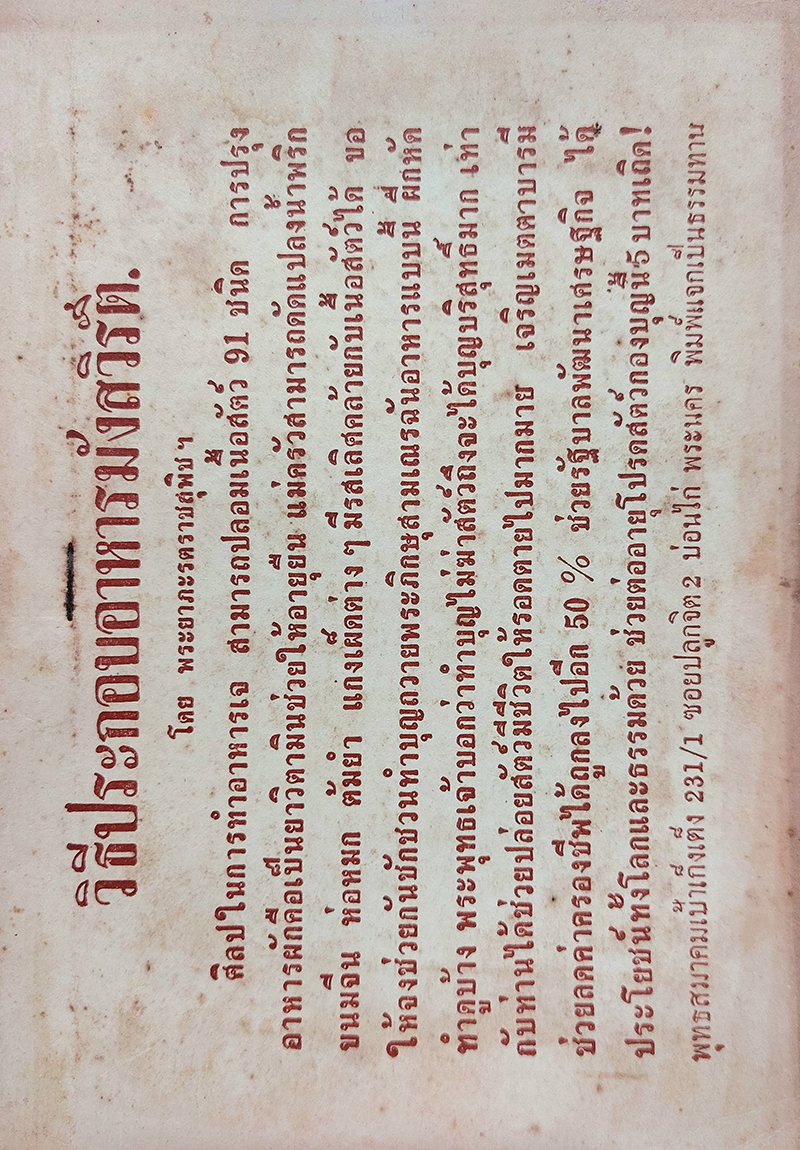 วิธีประกอบอาหารมังสวิรัต.
โดย พระยาภะรตราชสุพิช ฯ
ศิลปในการทำอาหารเจ สามารถปลอมเนื้อสัตว์ 91 ชนิด การปรุง
อาหารผักคือเป็นยาวิตามินช่วยให้อายุยืน แม่ครัวสามารถดัดแปลงน้ำพริก
ขนมจีน ห่อหมก ต้มยำ แกงเผ็ดต่าง ๆ มีรสเลิศคล้ายกับเนื้อสัตว์ได้ ขอ
ให้จงช่วยกันชักชวนทำบุญถวายพระภิกษุสามเณรฉันอาหารแบบนี้ ฝึกหัด
ทำดูบ้าง พระพุทธเจ้าบอกว่าทำบุญไม่ฆ่าสัตว์ถึงจะได้บุญบริสุทธิ์มาก เท่า
กับท่านได้ช่วยปล่อยสัตว์มีชีวิตให้รอดตายไปมากมาย เจริญเมตตาบารมี
ช่วยลดค่าครองชีพได้ถูกลงไปอีก 50 % ช่วยรัฐบาลพัฒนาเศรษฐกิจ ได้
ประโยชน์ทั้งโลกและธรรมด้วย ช่วยต่ออายุโปรดสัตว์กองบุญนี้ 5 บาทเถิด!
พุทธสมาคมเป้าเก็งเต็ง 231/1 ซอยปลูกจิต 2 บ่อนไก่ พระนคร พิมพ์แจกเป็นธรรมทาน